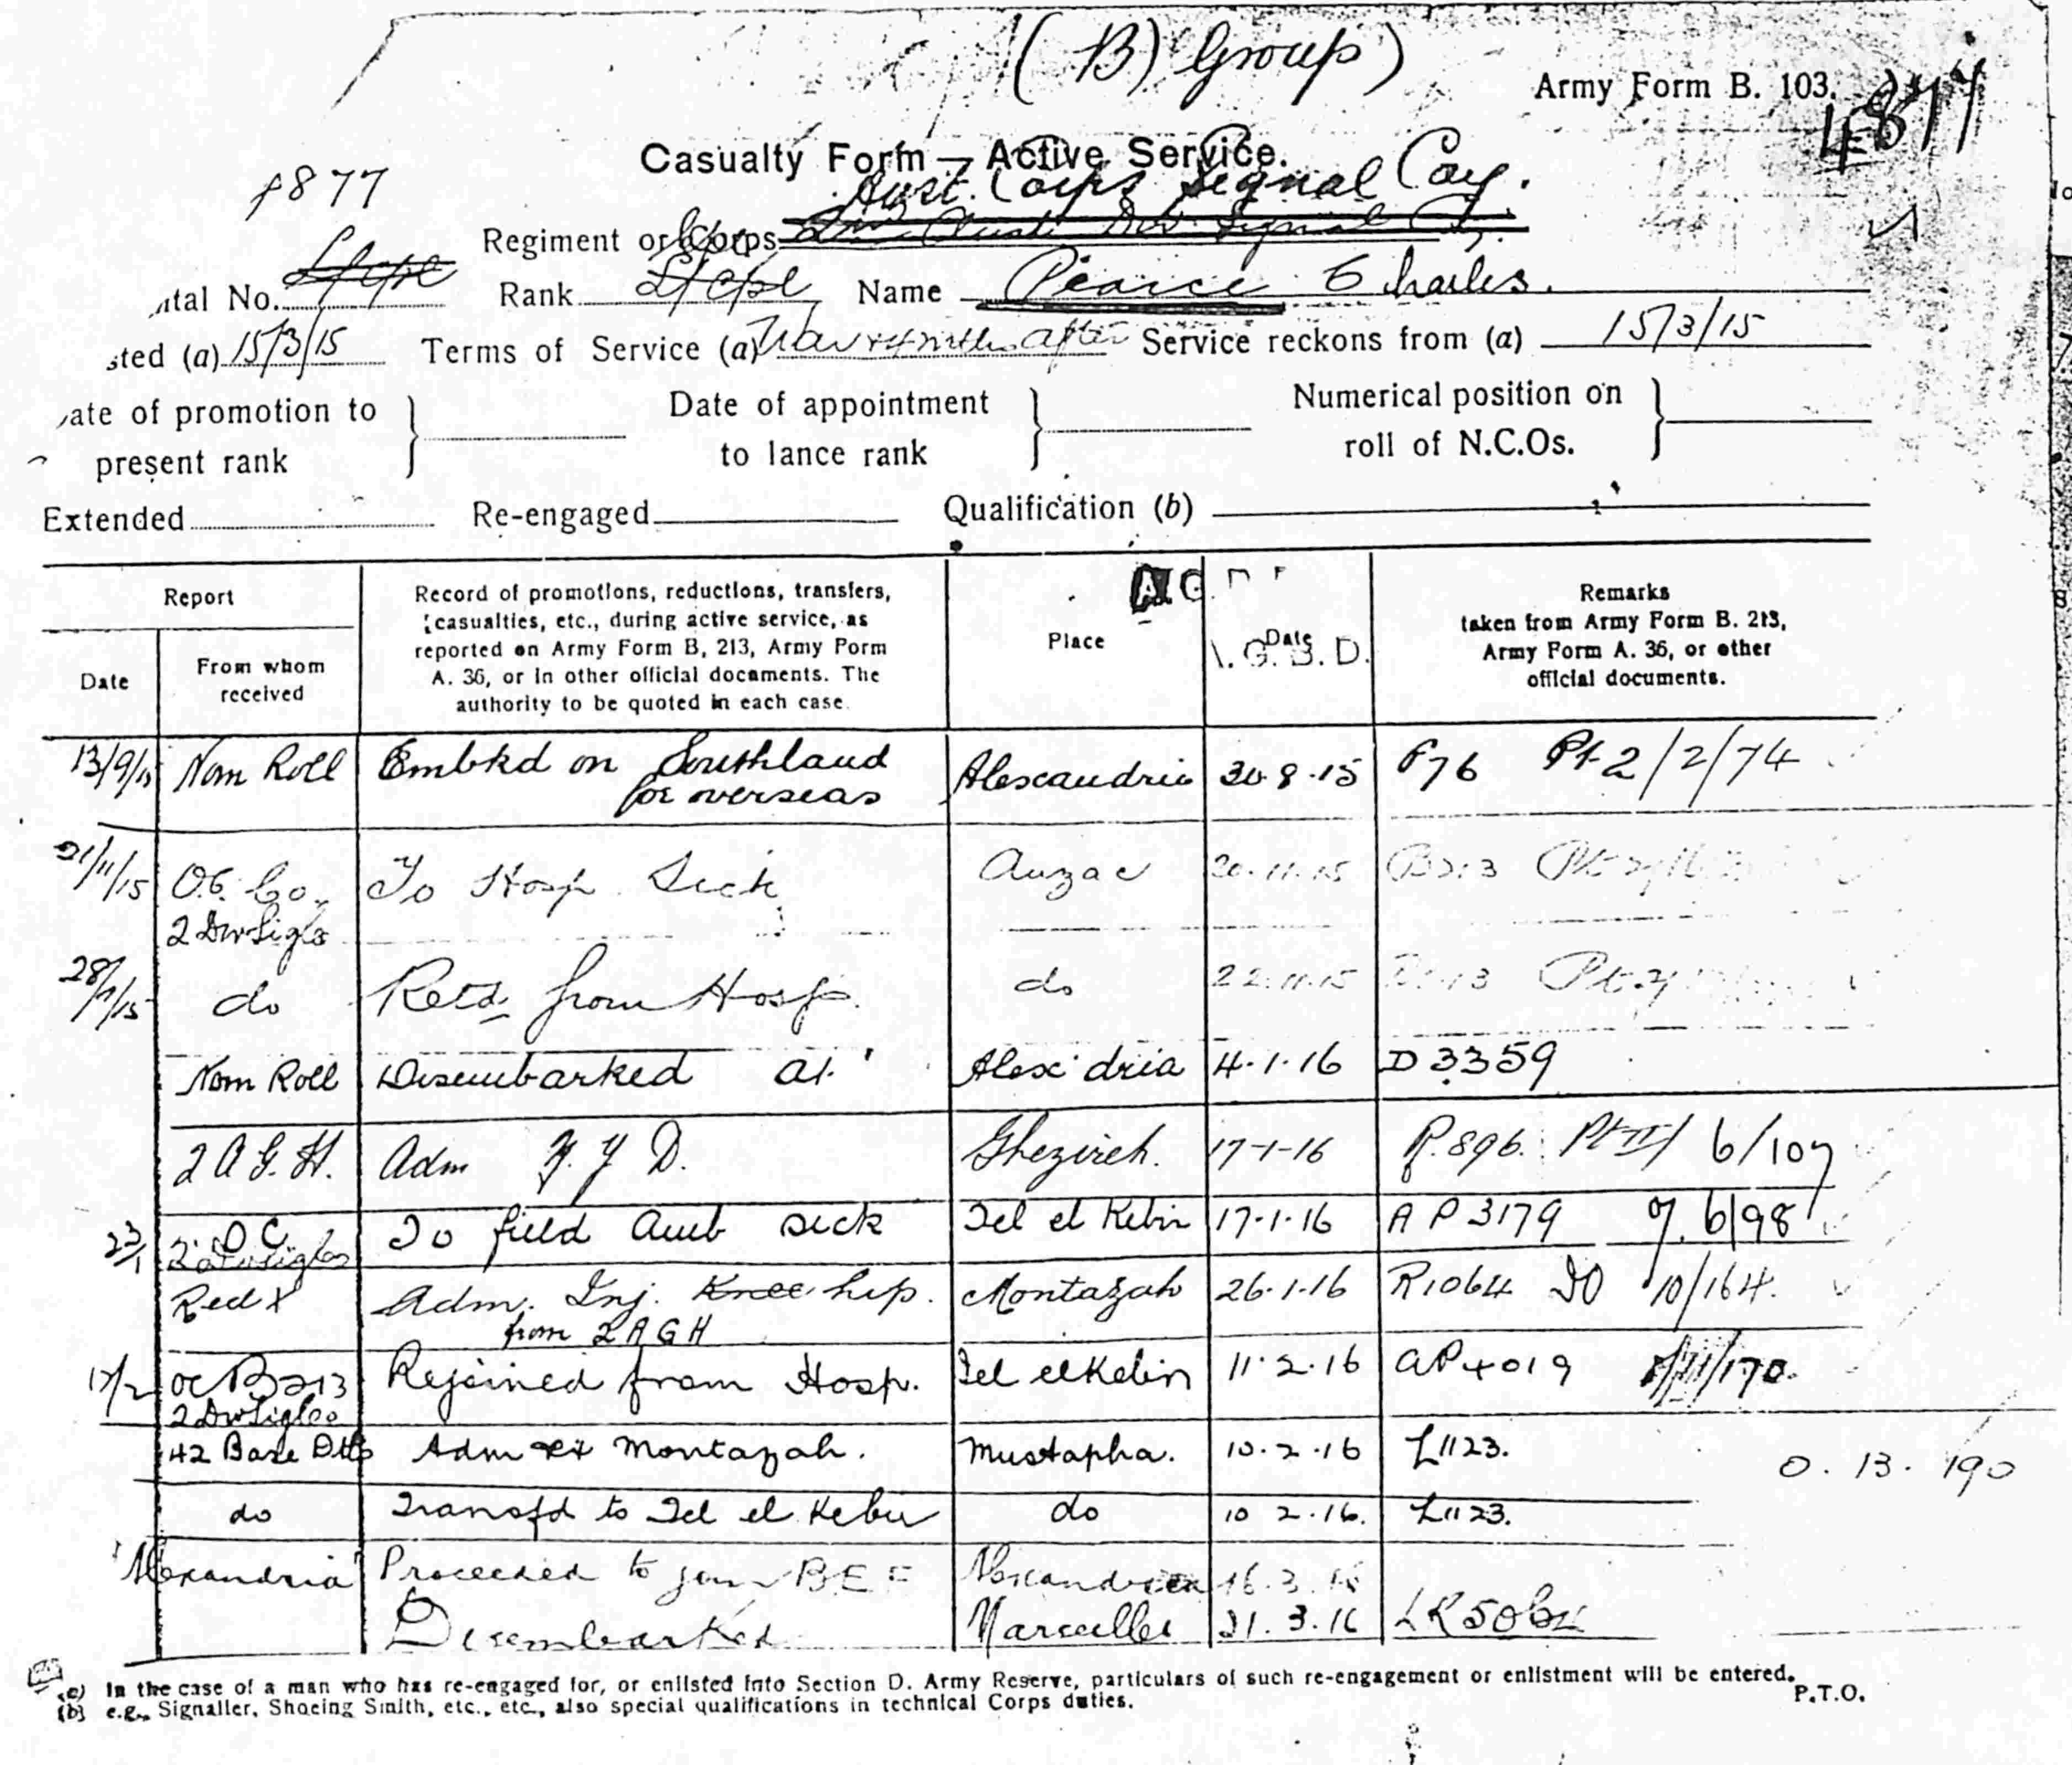 (B) Group)
Army Form B. 103.
4877
Casualty Form — Active Service.
Aust. Corps Signal Coy.
4877
Regiment or Corps
L/Cpl
ntal No. Rank L/Cpl Name Pearce Charles.
sted (a) 15/3/15 Terms of Service (a) War & 4 mths after Service reckons from (a) 15/3/15
ate of promotion to present rank
Date of appointment to lance rank
Numerical position on roll of N.C.Os.
Extended Re-engaged Qualification (b)
Report
Date
From whom received
Record of promotions, reductions, transfers,
casualties, etc., during active service, as
reported on Army Form B, 213, Army Form
A. 36, or in other official documents. The
authority to be quoted in each case.
Place
A.G.
Date
G.B.D.
Remarks
taken from Army Form B. 213,
Army Form A. 36, or other
official documents.
13/9/15 Nom Roll Embkd on Southland Alexandria 30.8.15 F76 Pt 2/2/74
for overseas
21/11/15 O.C. Co. To Hosp Sick Anzac 20.11.15 B213
2 Div Sigls
28/11/15 do Retd from Hosp. do 22.11.15
Nom Roll Disembarked at Alex'dria 4.1.16 D 3359
2 A G. H. Adm N. Y. D. Ghezireh. 17-1-16 R.896. Pt II/ 6/107
23/1 O C To field Amb sick Tel el Kebir 17.1.16 A P 3179 6/98
2 Div Sigls
Red X Adm. Inj. Knee hip. Montazah 26.1.16 R1064 10/164.
from 2 A G H
17/2 OC B213 Rejoined from Hosp. Tel el Kebir 11.2.16 AP4019
2 Div Sigls
42 Base Dtls Adm ex Montazah. Mustapha. 10.2.16 L1123. 0.13.190
do Transfd to Tel el Kebir do 10 2.16. L1123.
Alexandria Proceeded to join BEF Alexandria 16.3.16
Disembarked Marseilles 21.3.16 LR5064
(a) In the case of a man who has re-engaged for, or enlisted into Section D. Army Reserve, particulars of such re-engagement or enlistment will be entered.
(b) e.g., Signaller, Shoeing Smith, etc., etc., also special qualifications in technical Corps duties.
P.T.O.